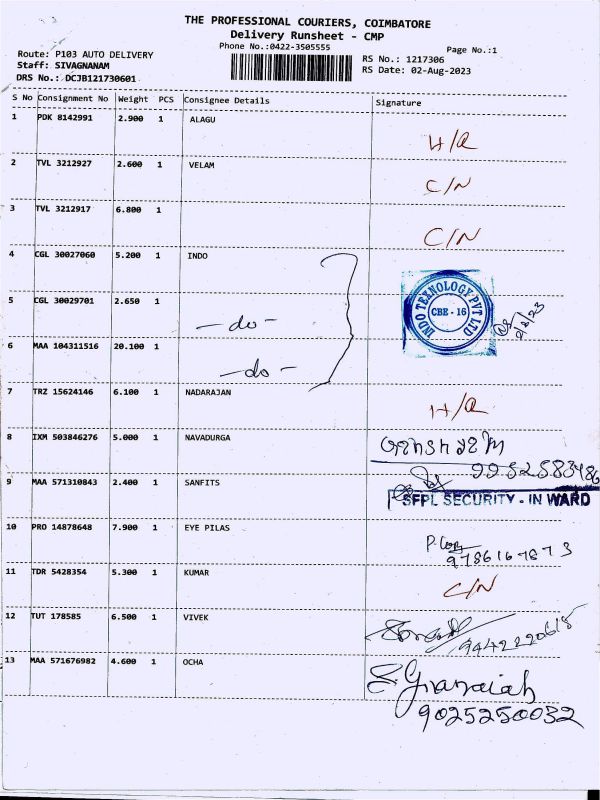 THE PROFESSIONAL COURIERS, COIMBATORE
Delivery Runsheet - CMP
Phone No.:0422-3505555
Page No.:1
Route: P103 AUTO DELIVERY
RS No.: 1217306
Staff: SIVAGNANAM
RS Date: 02-Aug-2023
DRS No.: DCJB121730601
S No Consignment No Weight PCS Consignee Details Signature
1 PDK 8142991 2.900 1 ALAGU
2 TVL 3212927 2.600 1 VELAM C/N
3 TVL 3212917 6.800 1 C/N
4 CGL 30027060 5.200 1 INDO
INDO TEXNOLOGY PVT LTD
CBE - 16
2/8/23
5 CGL 30029701 2.650 1 -do-
6 MAA 104311516 20.100 1 -do-
7 TRZ 15624146 6.100 1 NADARAJAN
8 IXM 503846276 5.000 1 NAVADURGA
9952583486
9 MAA 571310843 2.400 1 SANFITS
SFPL SECURITY - IN WARD
10 PRO 14878648 7.900 1 EYE PILAS
11 TDR 5428354 5.300 1 KUMAR C/N
12 TUT 178585 6.500 1 VIVEK
13 MAA 571676982 4.600 1 OCHA
9025250032